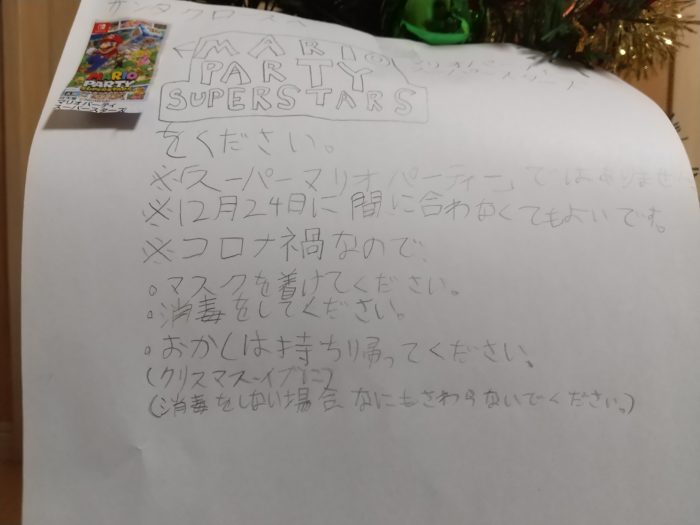 サンタクロースへ
MARIO
PARTY
SUPERSTARS
MARIO
PARTY
SUPERSTARS
マリオパーティ
スーパースターズ
をください。
※「スーパーマリオパーティー」ではありません
※12月24日に間に合わなくてもよいです。
※コロナ禍なので、
。マスクを着けてください。
。消毒をしてください。
。おかしは持ち帰ってください。
(クリスマスーイブに)
(消毒をしない場合、なにもさわらないでください。)